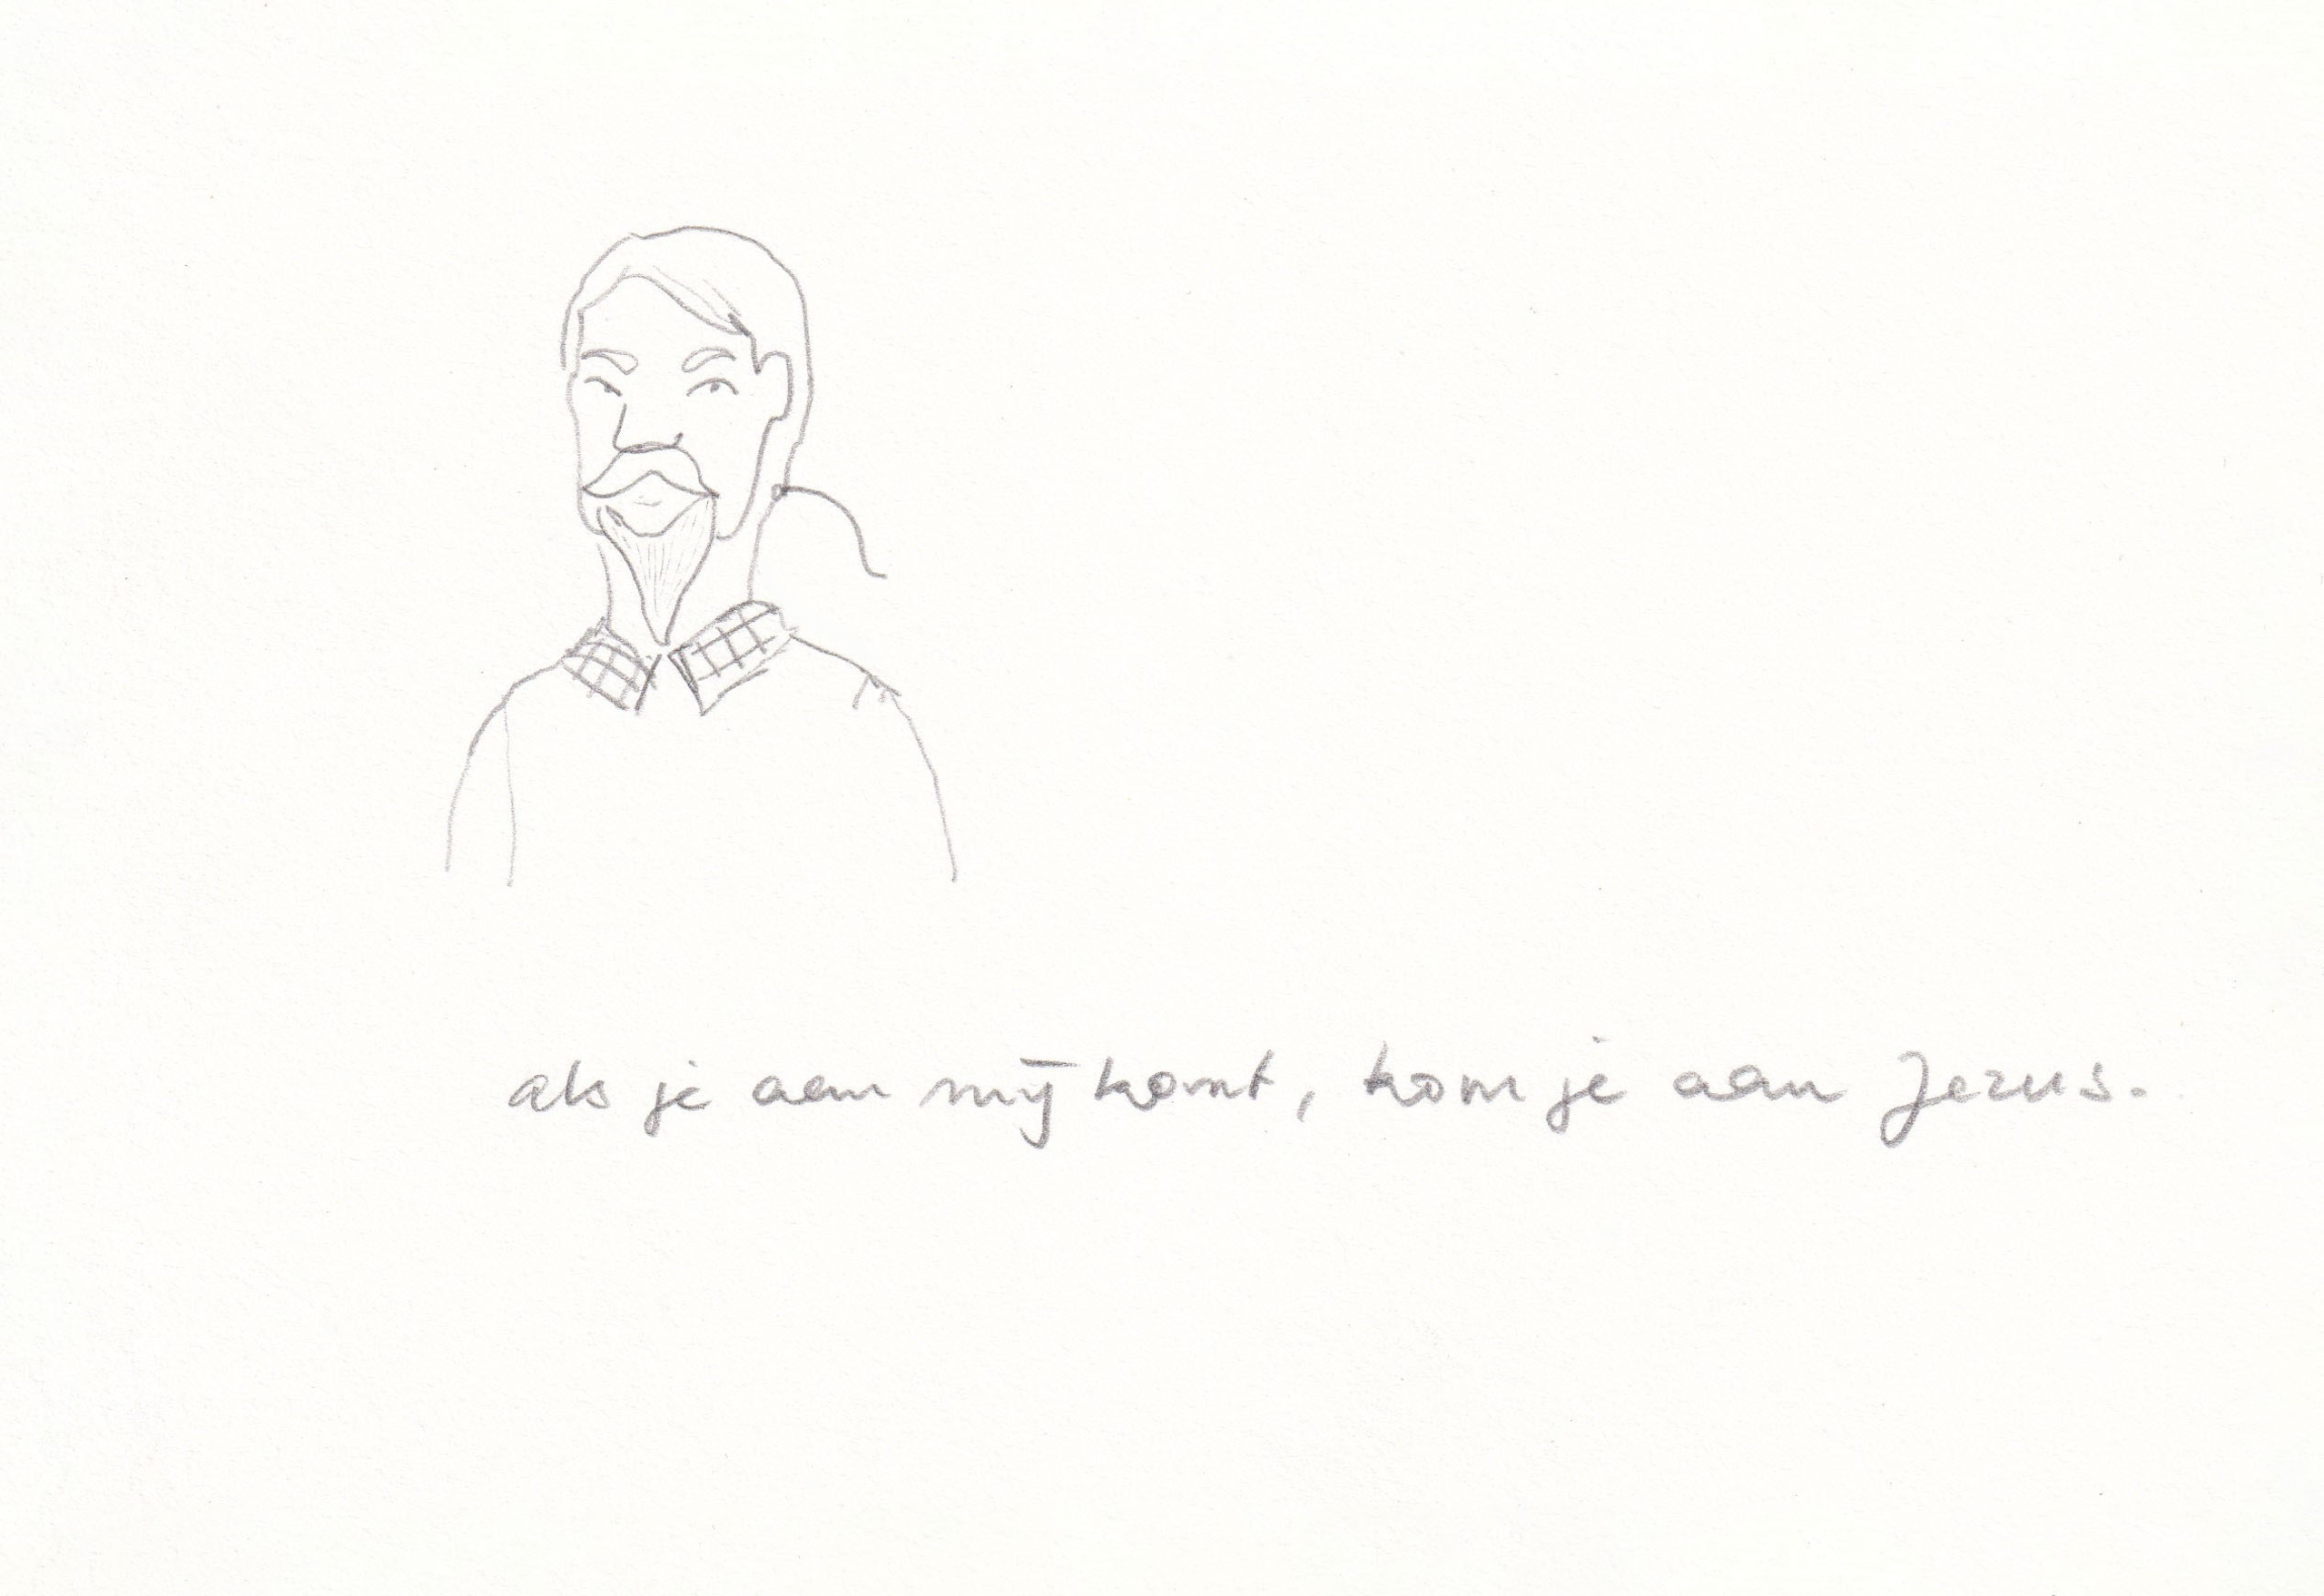 als je aan mij komt, kom je aan Jezus.